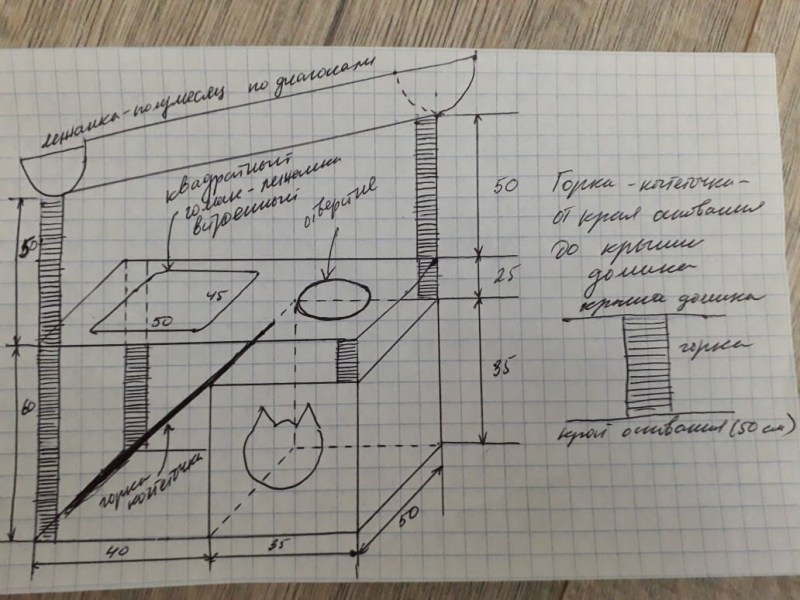 лежанка-полумесяц по диагонали
квадратный
гамак-лежанка
встроенный
отверстие
50
50
45
50
25
60
35
горка
когтеточка
40
35
50
Горка-когтеточка-
от края основания
до крыши
домика
крыша домика
горка
край основания (50 см)